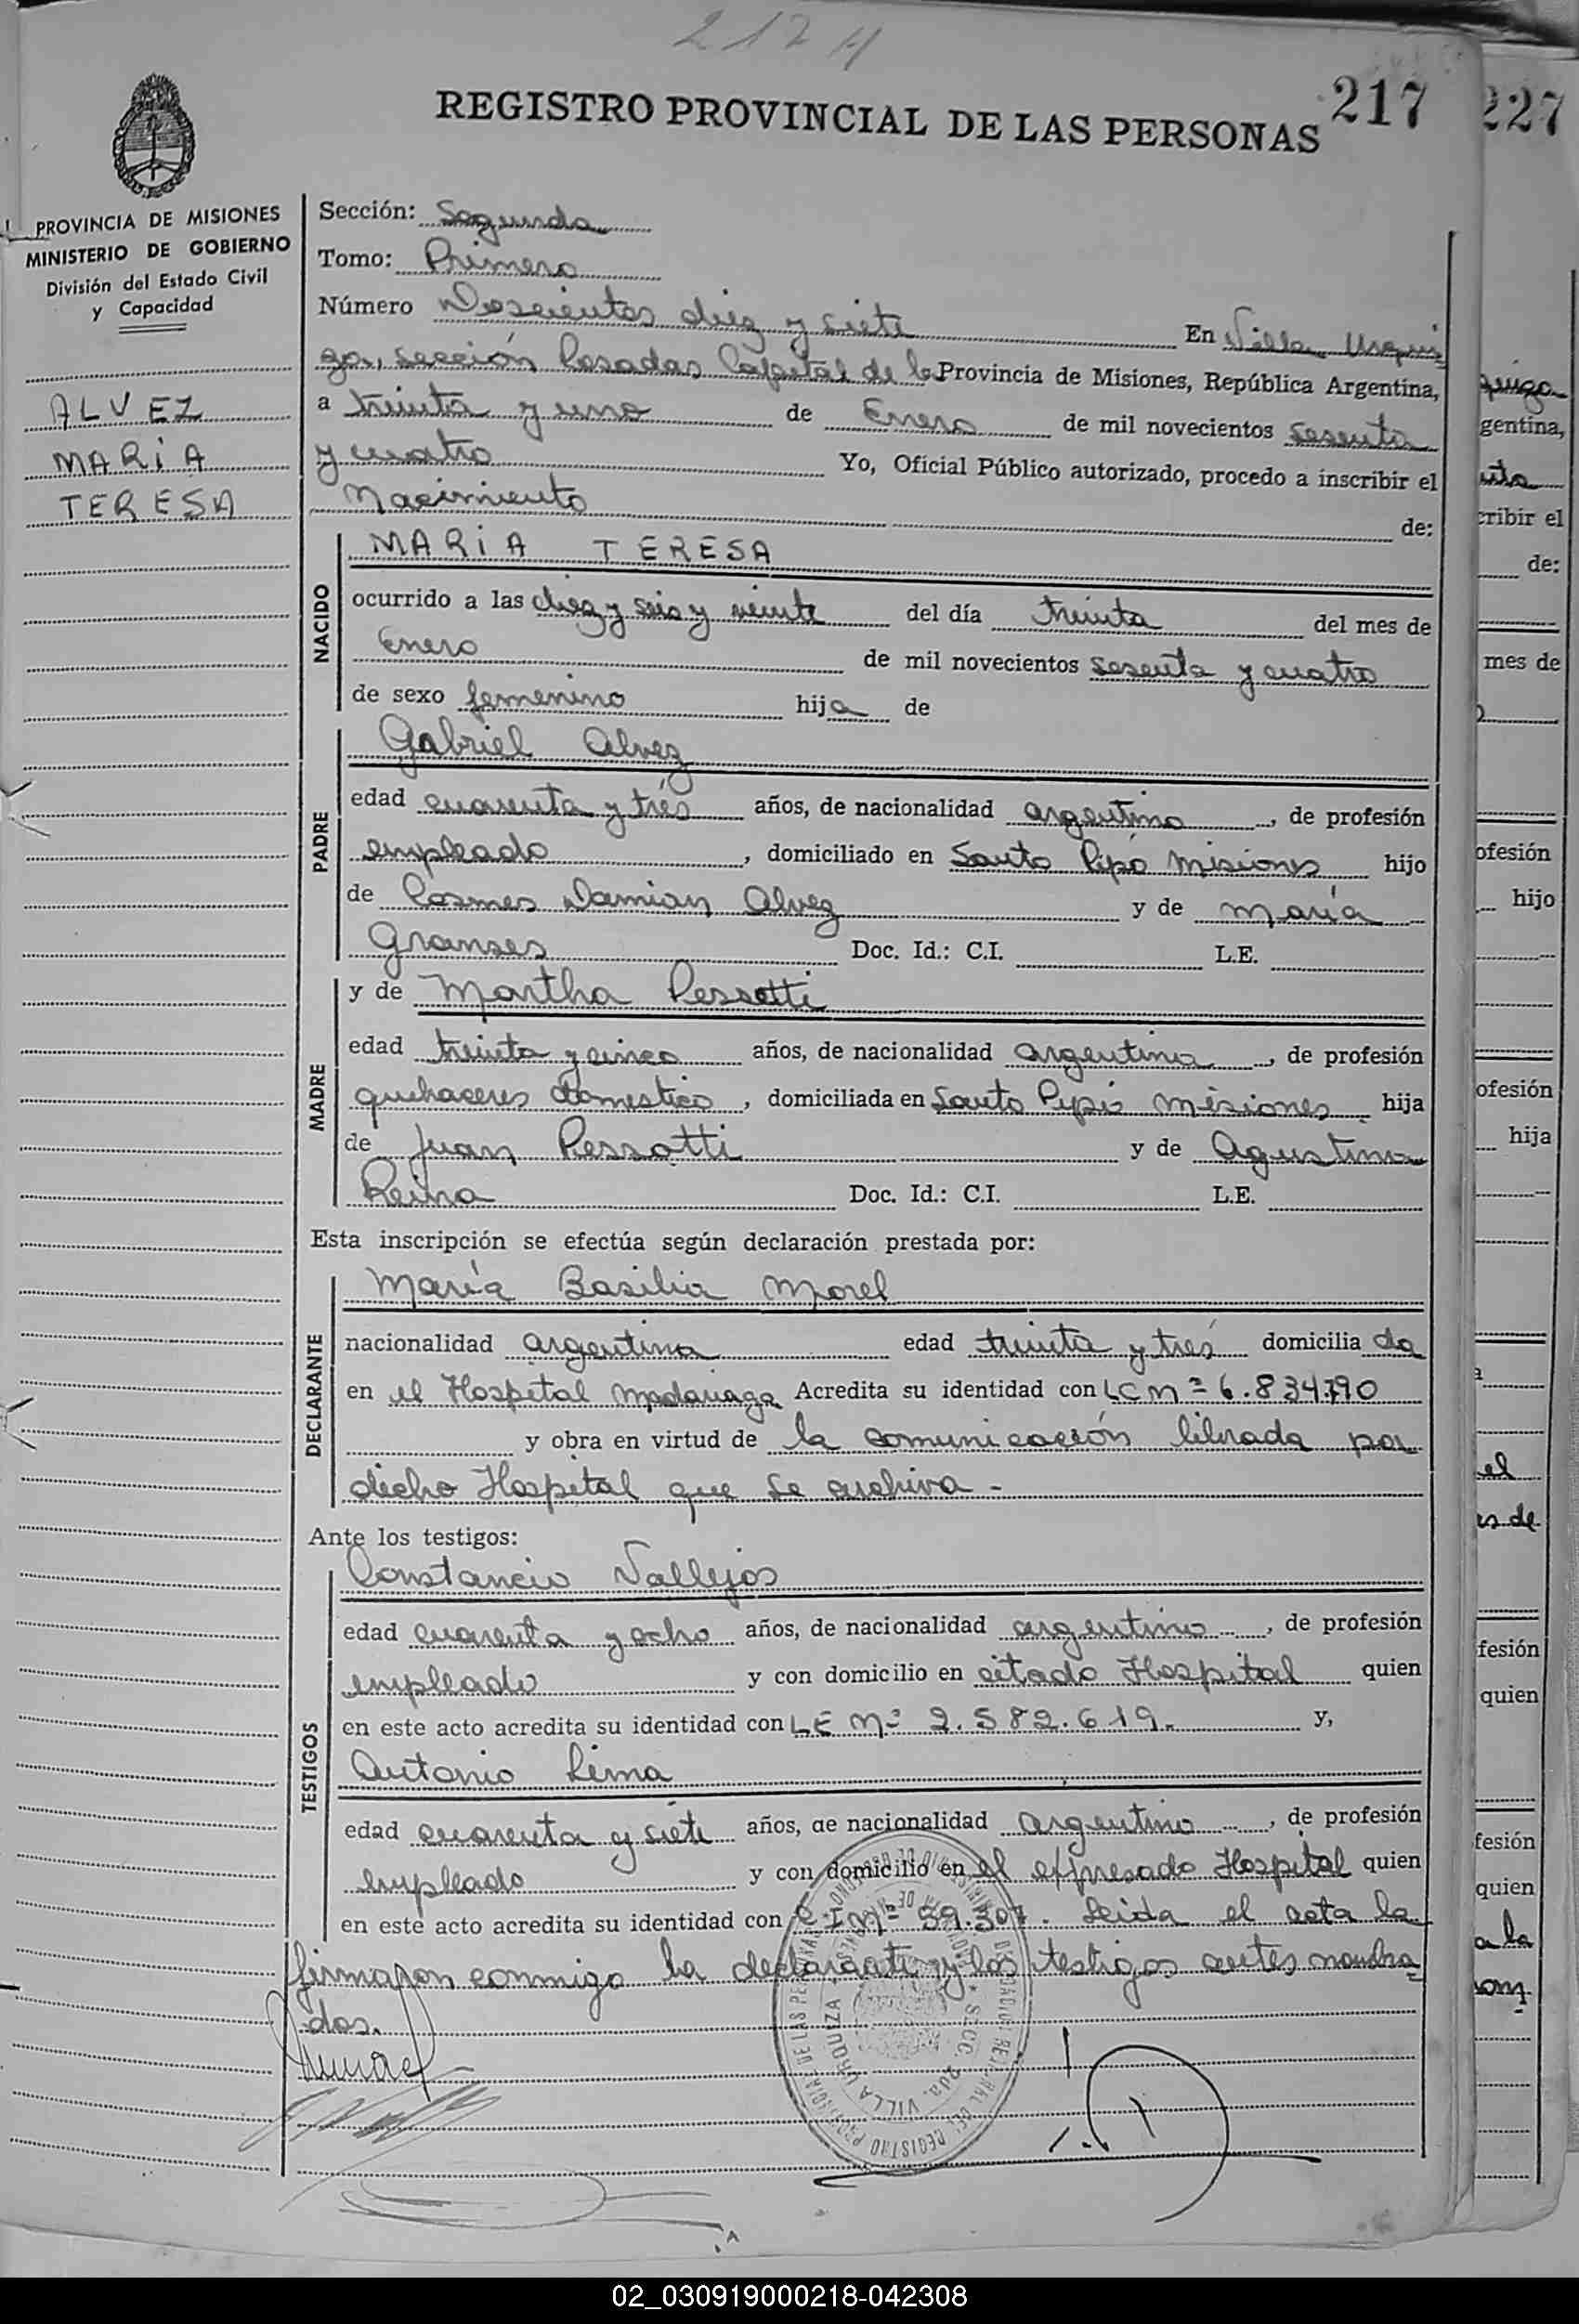 217 4
REGISTRO PROVINCIAL DE LAS PERSONAS 217
227
PROVINCIA DE MISIONES
MINISTERIO DE GOBIERNO
División del Estado Civil
y Capacidad
ALVEZ
MARIA
TERESA
Sección: Segunda
Tomo: Primero
Número Doscientos diez y siete En Villa Urqui
za, sección Posadas Capital de la Provincia de Misiones, República Argentina,
a treinta y uno de Enero de mil novecientos sesenta
y cuatro Yo, Oficial Público autorizado, procedo a inscribir el
Nacimiento de:
NACIDO
MARIA TERESA
ocurrido a las diez y seis y veinte del día treinta del mes de
Enero de mil novecientos sesenta y cuatro
de sexo femenino hija de
PADRE
Gabriel Alvez
edad cuarenta y trés años, de nacionalidad argentino, de profesión
empleado, domiciliado en Santo Pipó Misiones hijo
de Cosmes Damian Alvez y de María
Granses Doc. Id.: C.I. L.E.
MADRE
y de Martha Pessotti
edad treinta y cinco años, de nacionalidad argentina, de profesión
quehaceres domestico, domiciliada en Santo Pipó Misiones hija
de Juan Pessotti y de Agustina
Reina Doc. Id.: C.I. L.E.
Esta inscripción se efectúa según declaración prestada por:
DECLARANTE
María Basilia Morel
nacionalidad argentina edad treinta y trés domicilia da
en el Hospital Madariaga Acredita su identidad con LC Nº 6.834.790
y obra en virtud de la comunicación librada por
dicho Hospital que se archiva -
Ante los testigos:
TESTIGOS
Constancio Vallejos
edad cuarenta y ocho años, de nacionalidad argentino, de profesión
empleado y con domicilio en citado Hospital quien
en este acto acredita su identidad con LE Nº 2.582.619. y,
Antonio Lima
edad cuarenta y siete años, de nacionalidad argentino, de profesión
empleado y con domicilio en el expresado Hospital quien
en este acto acredita su identidad con C.I Nº 59.307. Leida el acta la
firmaron conmigo la declarante y los testigos antes nombra
dos.
SECC. 2da. VILLA URQUIZA
gentina,
cribir el
de:
mes de
ofesión
hijo
ofesión
hija
el
es de
fesión
quien
fesión
quien
a la
02_030919000218-042308